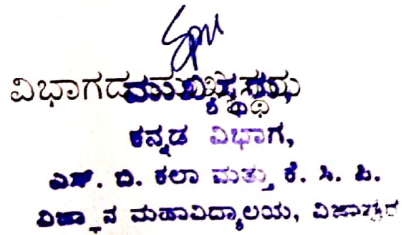 ವಿಭಾಗದ ಮುಖ್ಯಸ್ಥರು,
ಕನ್ನಡ ವಿಭಾಗ,
ಎಸ್. ಬಿ. ಕಲಾ ಮತ್ತು ಕೆ. ಸಿ. ಪಿ.
ವಿಜ್ಞಾನ ಮಹಾವಿದ್ಯಾಲಯ, ವಿಜಾಪುರ